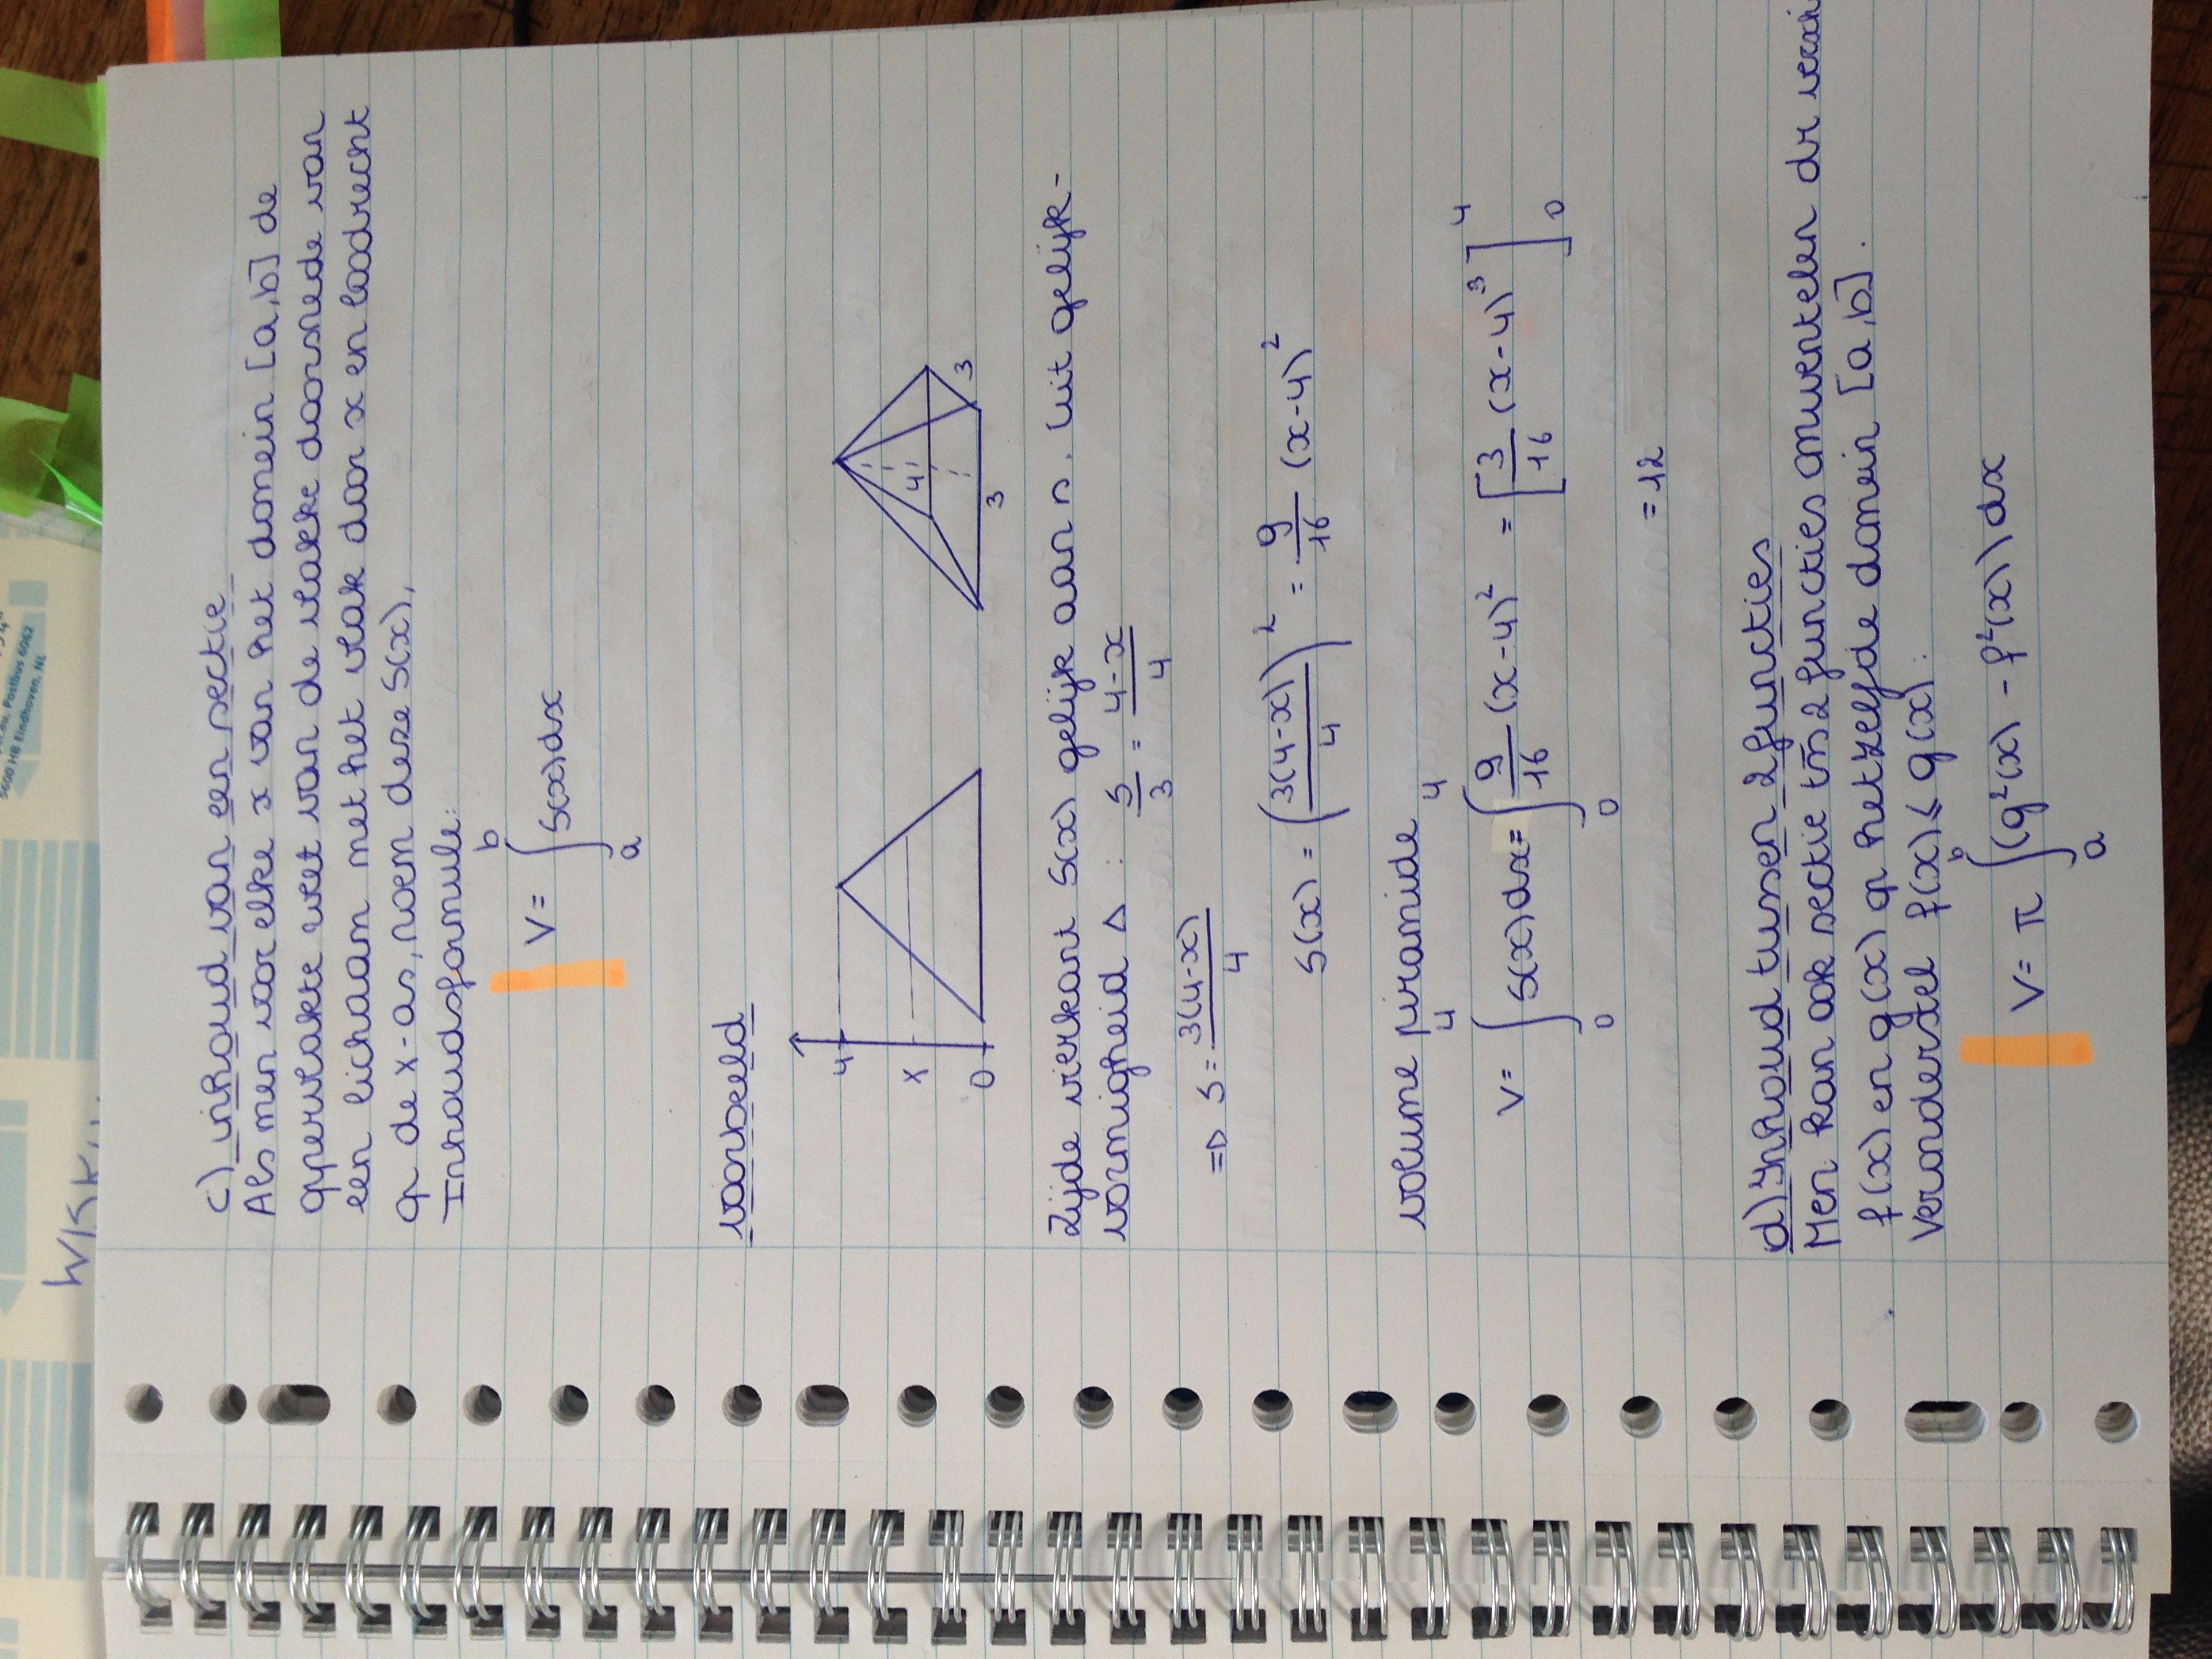 .eu, Postbus 6062
5600 HB Eindhoven, NL
c) inhoud van een sectie
Als men voor elke x van het domein [a,b] de
oppervlakte weet van de vlakke doorsnede van
een lichaam met het vlak door x en loodrecht
op de x-as, noem deze S(x),
Inhoudsformule:
b
V = ∫ S(x) dx
a
voorbeeld
4
x
0
4
3
3
Zijde vierkant S(x) gelijk aan s. Uit gelijk-
vormigheid Δ : s/3 = (4-x)/4
=> s = 3(4-x)/4
S(x) = (3(4-x)/4)² = 9/16 (x-4)²
volume piramide
4 4
V = ∫ S(x) dx = ∫ 9/16 (x-4)² = [3/16 (x-4)³]⁴₀
0 0
= 12
d) Inhoud tussen 2 functies
Men kan ook sectie tss 2 functies omwentelen dr
f(x) en g(x) op hetzelfde domein [a,b].
Veronderstel f(x) ≤ g(x):
b
V = π ∫ (g²(x) - f²(x)) dx
a